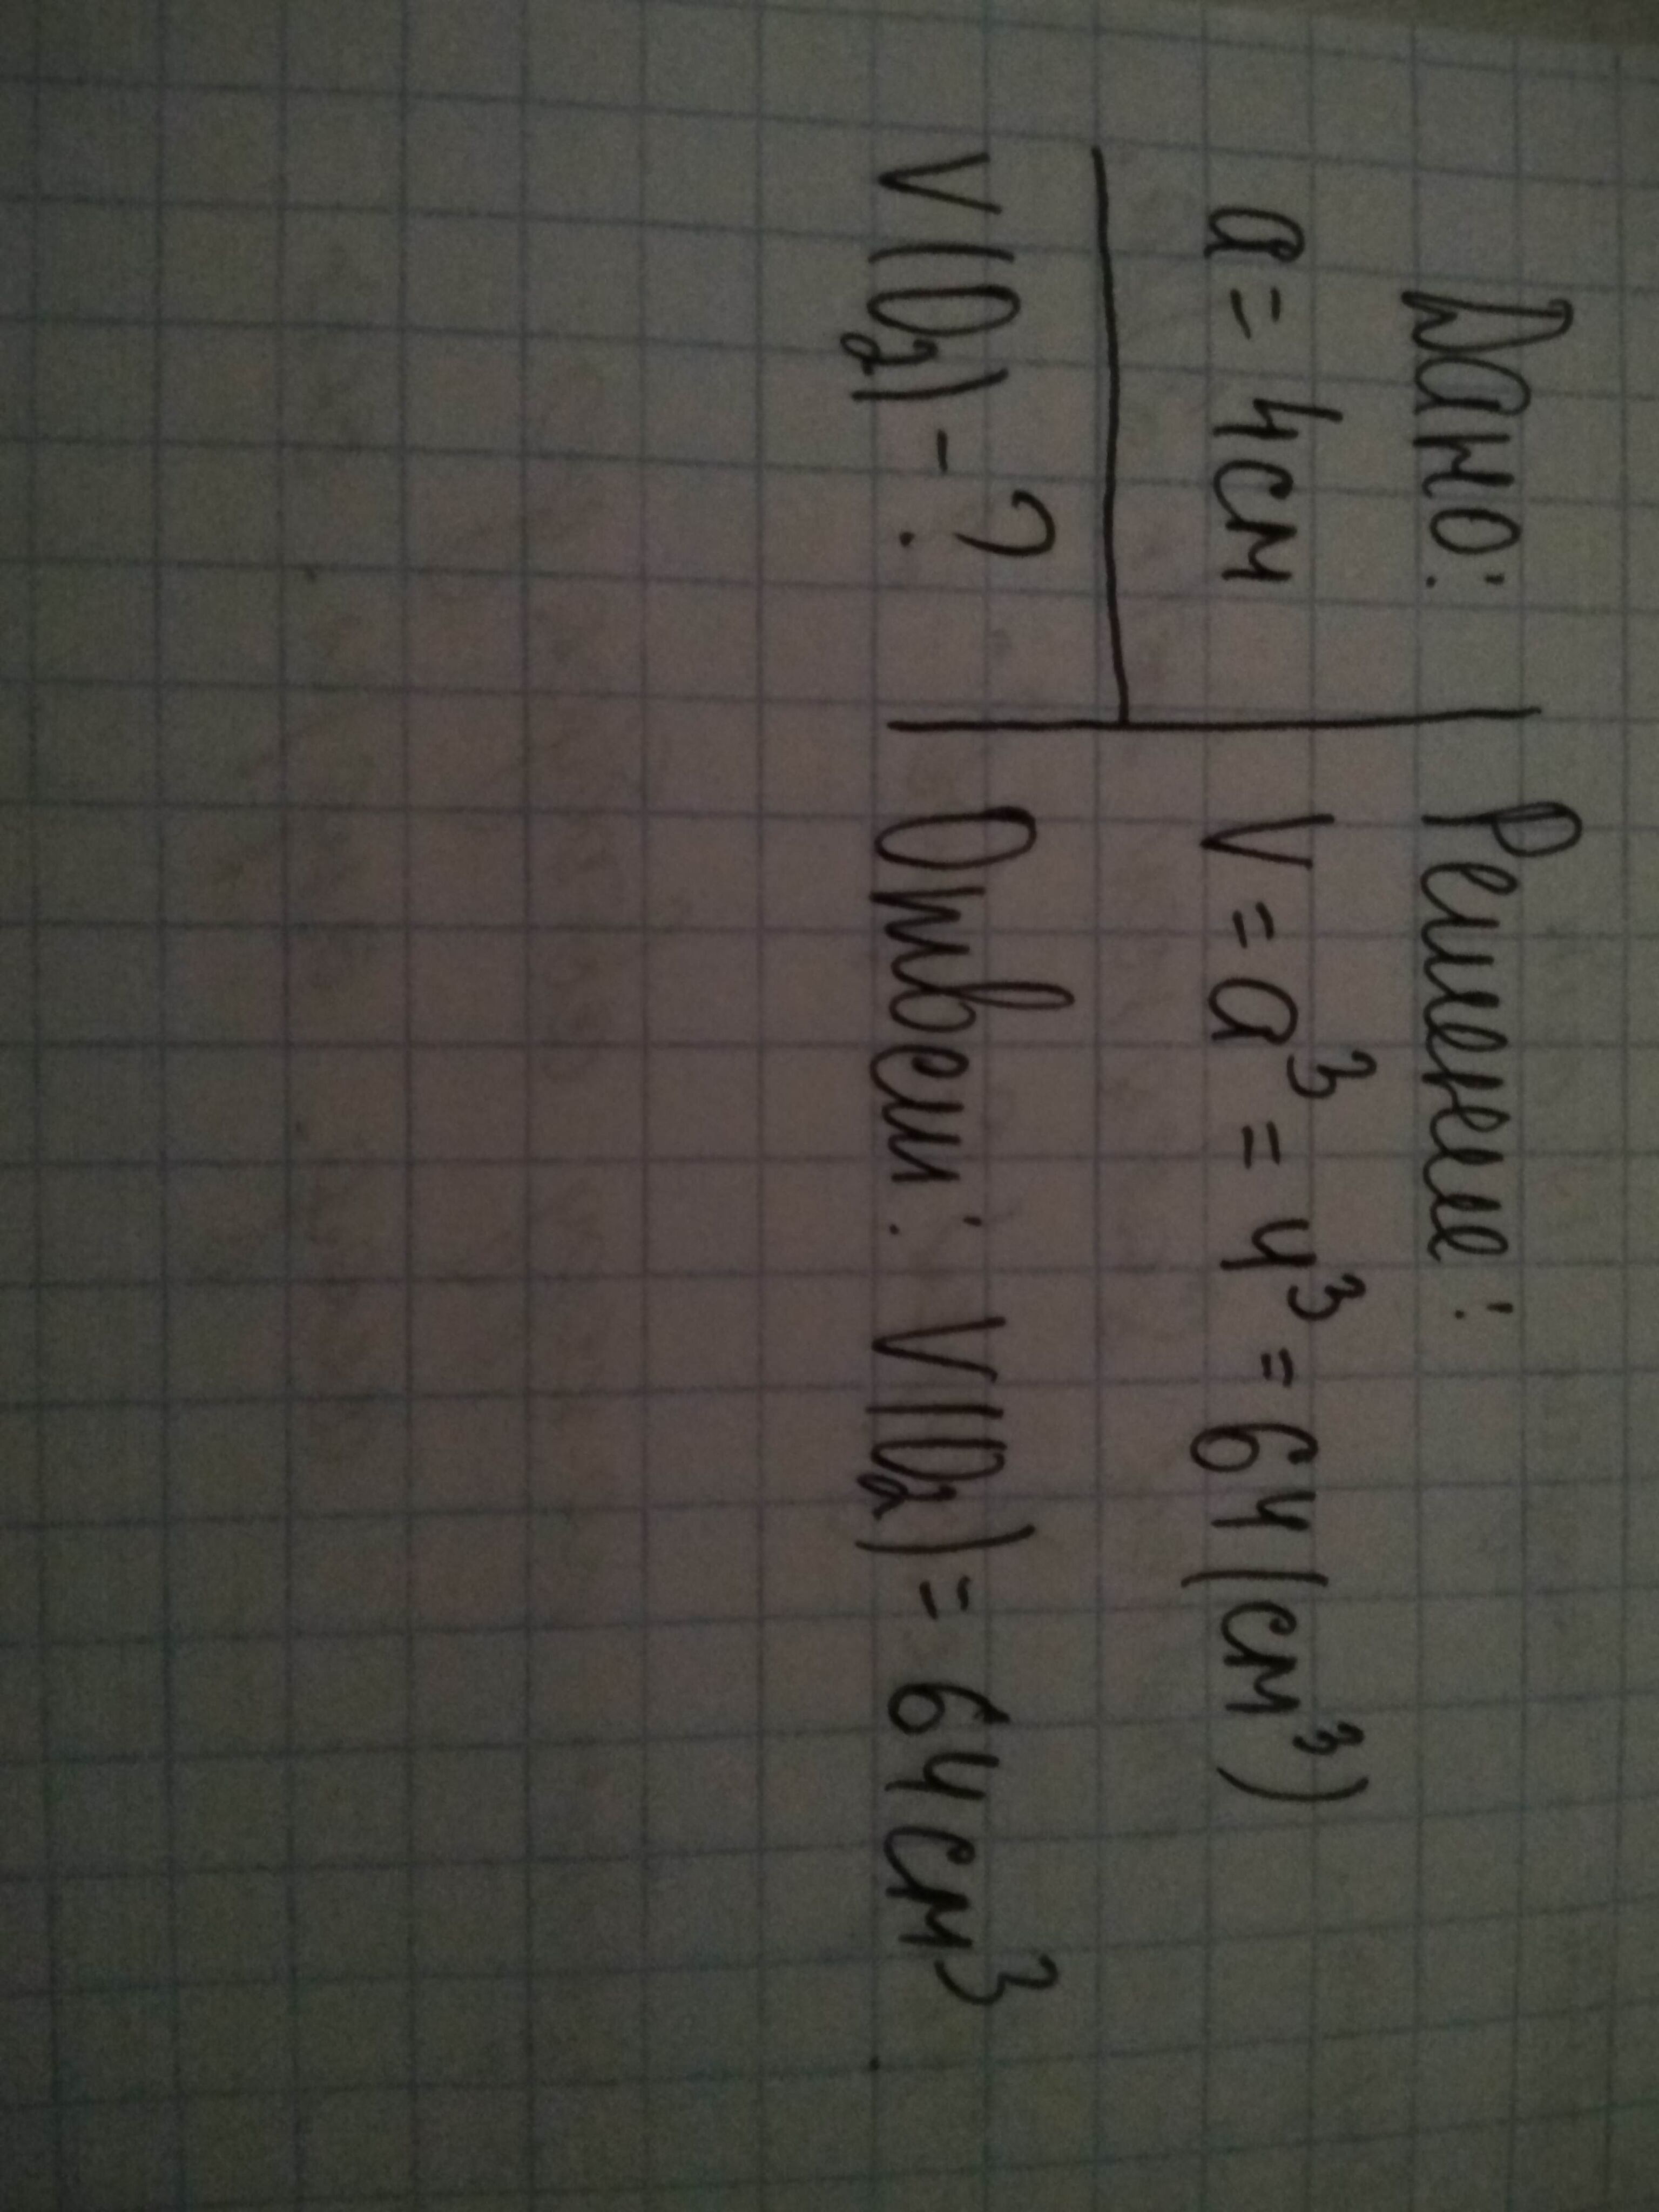 Дано:
a = 4см
V(O₂) - ?
Решение:
V = a³ = 4³ = 64 (см³)
Ответ: V(O₂) = 64 см³